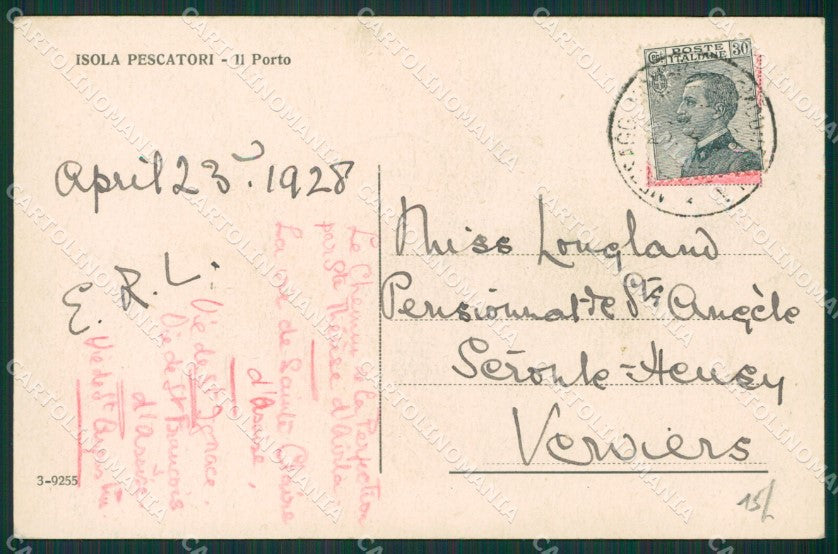 ISOLA PESCATORI - Il Porto
POSTE
ITALIANE
30
April 23. 1928
E. R. L.
Miss Longland
Pensionnat de Ste Angèle
Verviers
Le Chemin de la Perfection
par Ste Thérèse d'Avila
La vie de Sainte Claire
d'Assise,
Vie de St Ignace.
Vie de St François
d'Assise
Vie de St Augustin
3-9255
15/
CARTOLINOMANIA